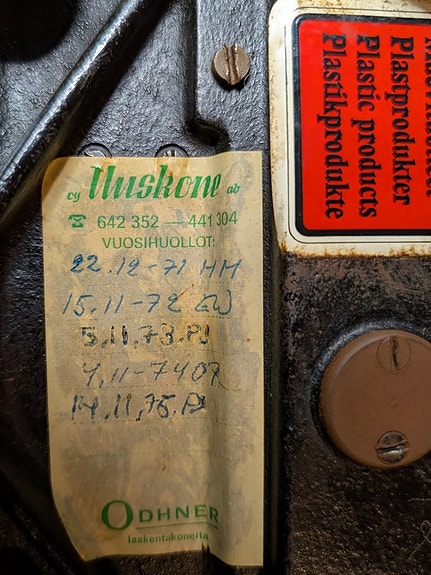 oy Uuskone ab
☎ 642 352 — 441 304
VUOSIHUOLLOT:
22.12-71 HM
15.11-72 EW
5.11.73.PJ
4.11-74
14.11.75.PJ
ODHNER
laskentakoneita
Plastprodukter
Plastic products
Plastikprodukte